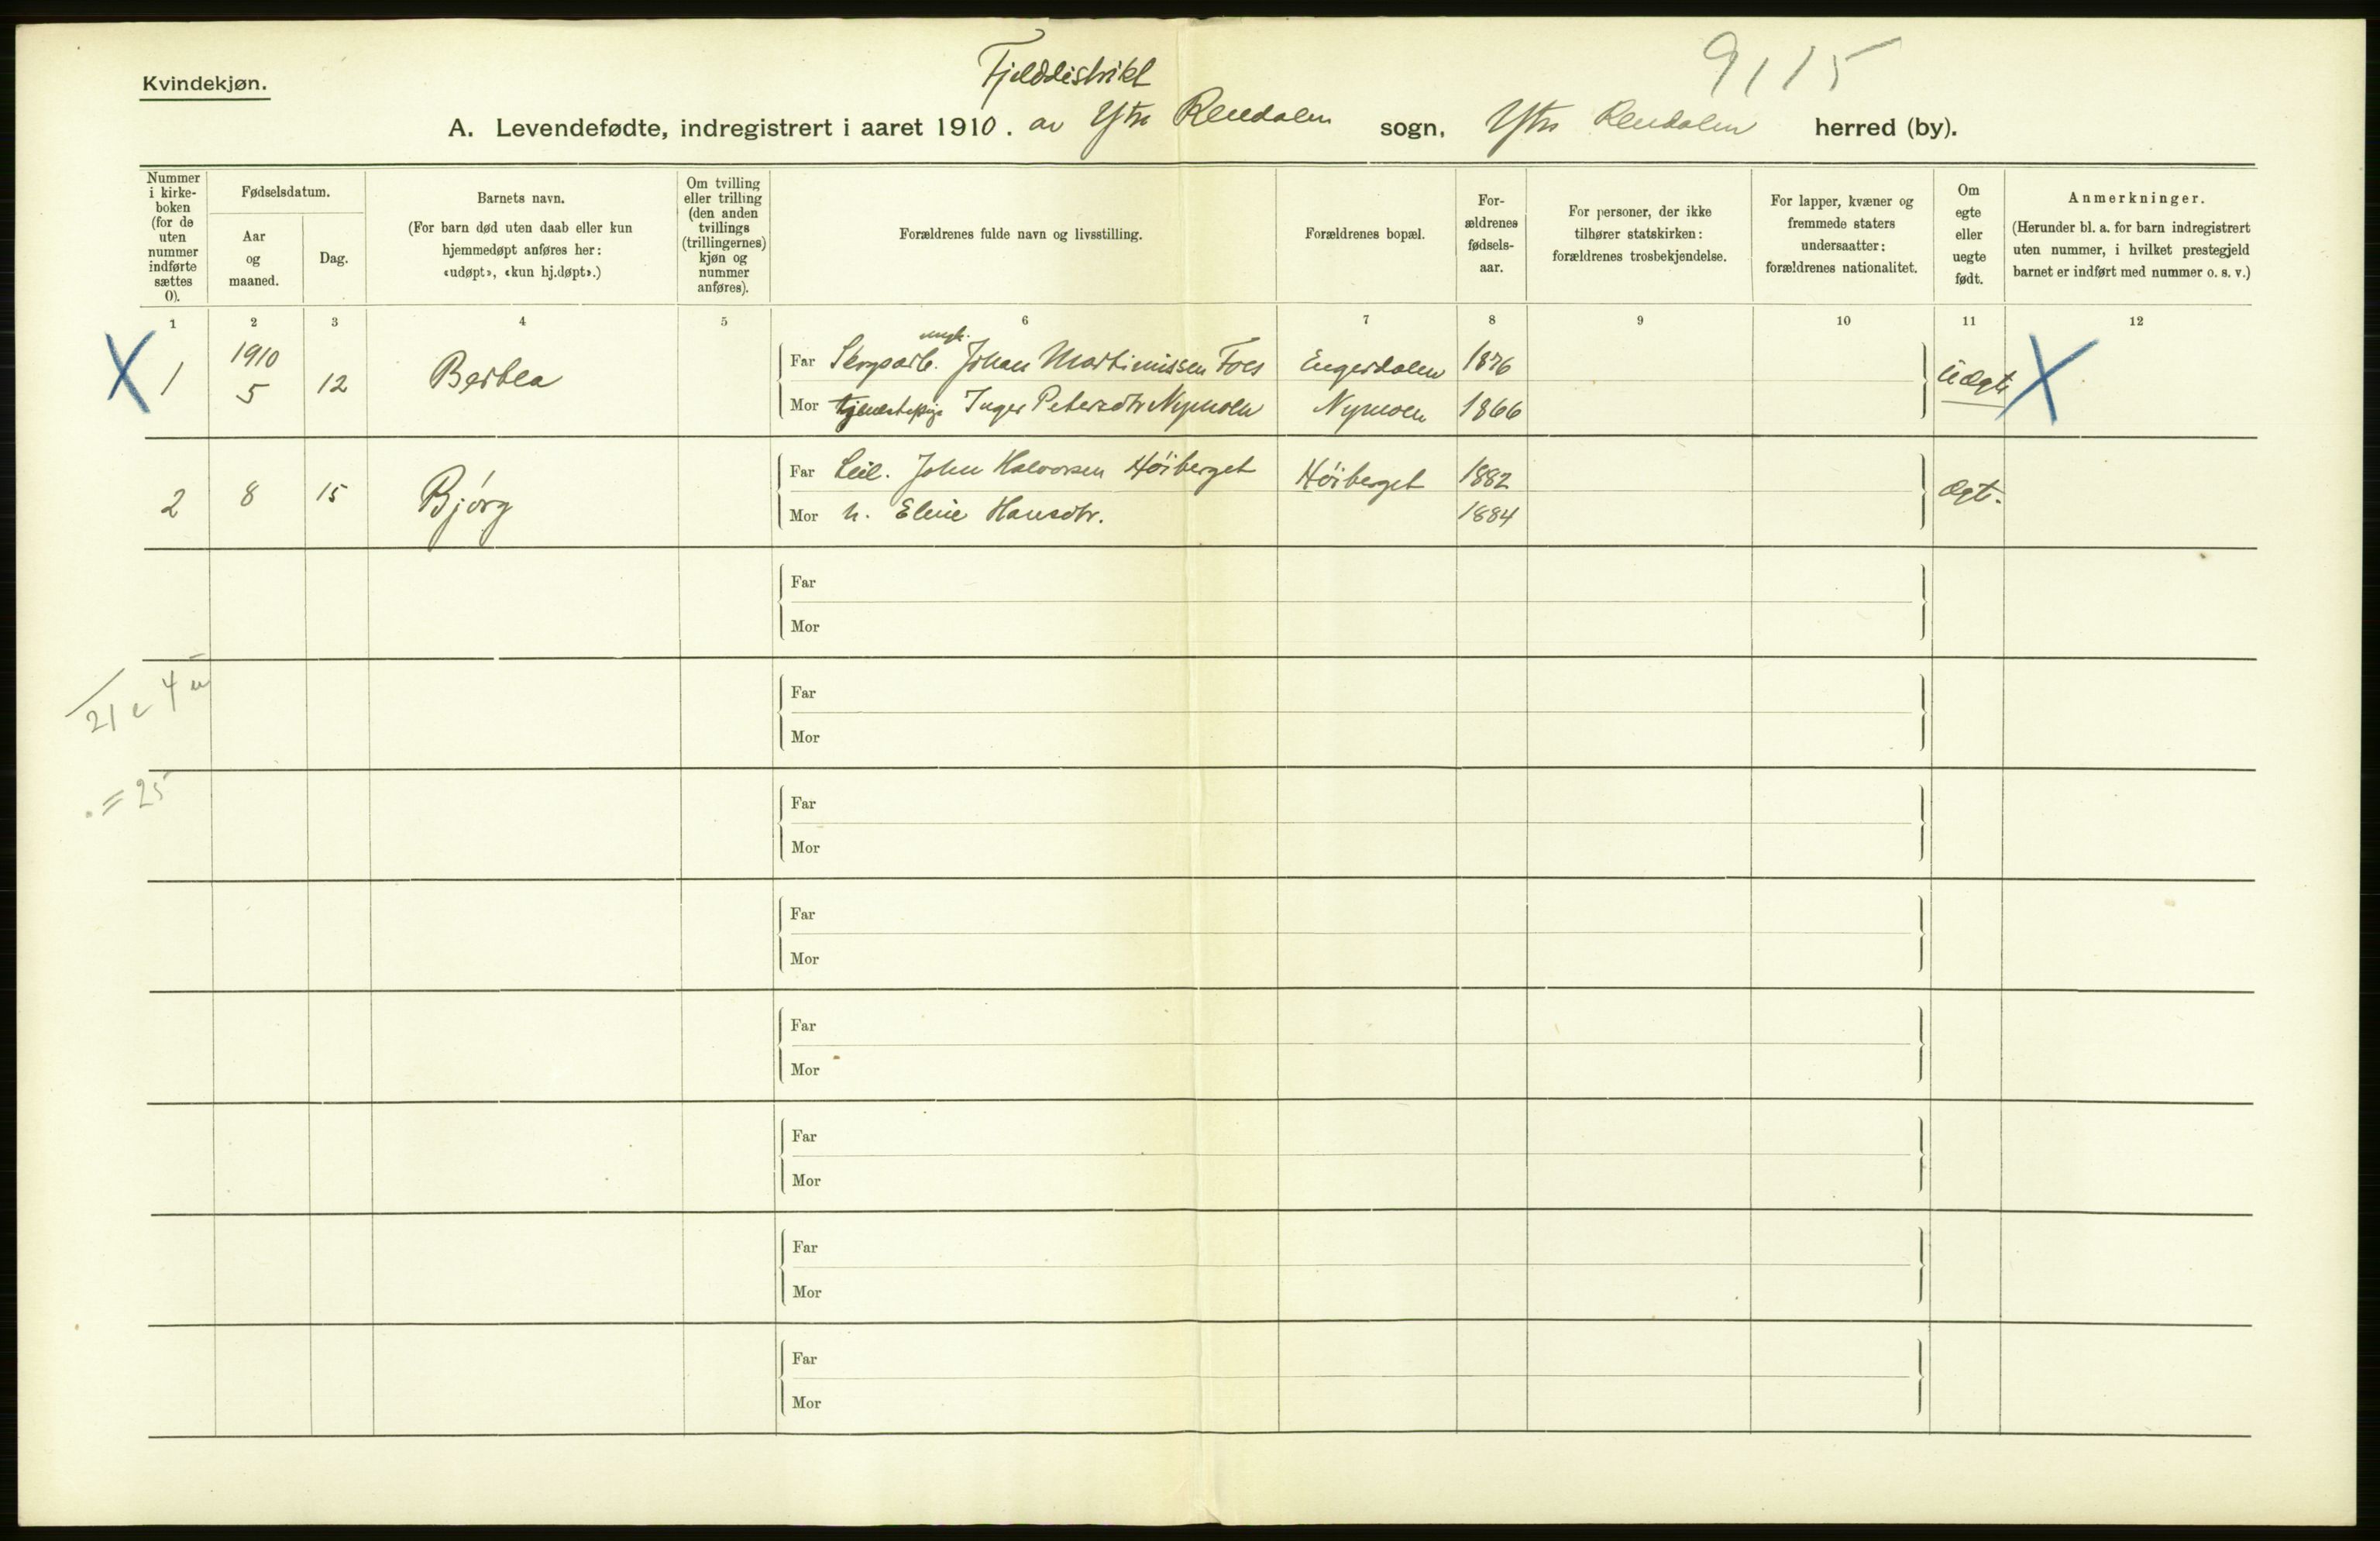 Kvindekjøn.
Fjelddistrikt
9115
A. Levendefødte, indregistrert i aaret 1910. av Ytre Rendalen sogn, Ytre Rendalen herred (by).
Nummer i kirke-boken (for de uten nummer indførte sættes 0).
Fødselsdatum.
Aar og maaned.
Dag.
Barnets navn.
(For barn død uten daab eller kun hjemmedøpt anføres her: «udøpt», «kun hj.døpt».)
Om tvilling eller trilling (den anden tvillings (trillingernes) kjøn og nummer anføres).
Forældrenes fulde navn og livsstilling.
Forældrenes bopæl.
For-ældrenes fødsels-aar.
For personer, der ikke tilhører statskirken: forældrenes trosbekjendelse.
For lapper, kvæner og fremmede staters undersaatter: forældrenes nationalitet.
Om egte eller uegte født.
Anmerkninger.
(Herunder bl. a. for barn indregistrert uten nummer, i hvilket prestegjeld barnet er indført med nummer o. s. v.)
1 2 3 4 5 6 7 8 9 10 11 12
X 1 1910 5 12 Berbea Far Skogsarb. ungk. Johan Martinissen Foss Engerdalen 1876 Uægte X
Mor tjenestepige Inger Petersdtr Nymoen Nymoen 1866
2 8 15 Bjørg Far Leil. John Halvorsen Höiberget Höiberget 1882 ægte.
Mor h. Eline Hansdtr. 1884
Far
Mor
Far
21 e 4 u
Mor
= 25
Far
Mor
Far
Mor
Far
Mor
Far
Mor
Far
Mor
Far
Mor